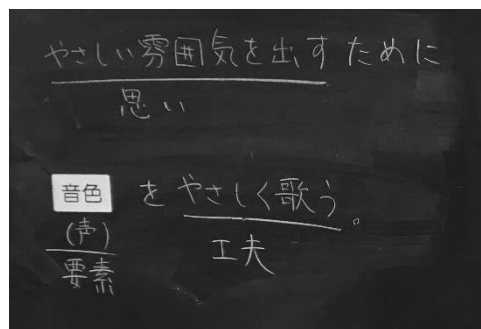 やさしい雰囲気を出すために
思い
音色をやさしく歌う。
(声)
工夫
要素